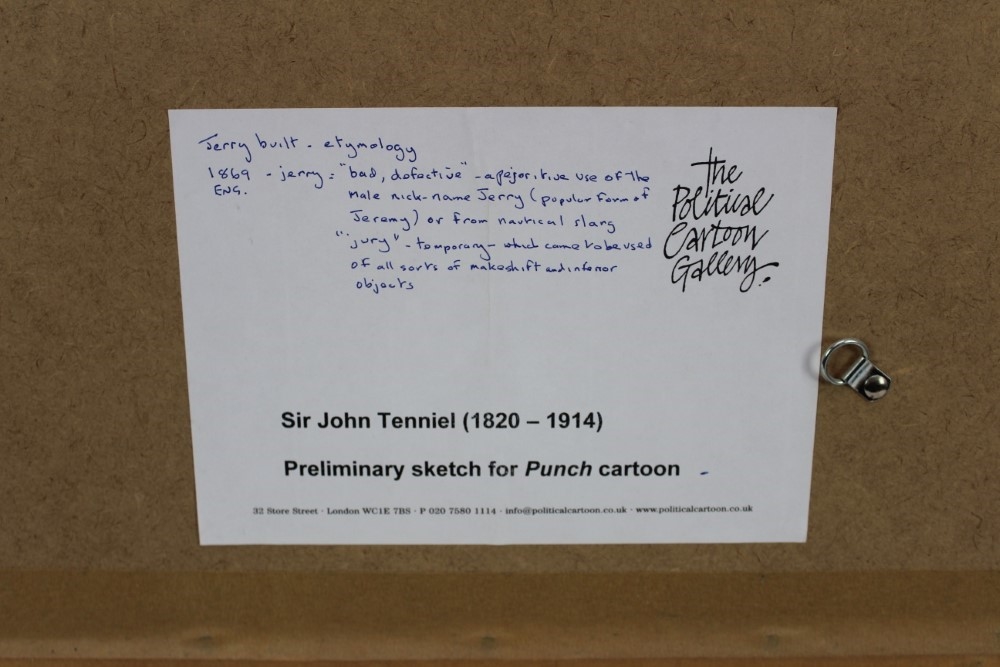 Jerry built - etymology
1869 - jerry = "bad, defective" - a pejoritive use of the
ENG. male nick-name Jerry (popular form of
Jeremy) or from nautical slang
"jury" - temporary - which came to be used
of all sorts of makeshift and inferior
objects
the
Political
Cartoon
Gallery.
Sir John Tenniel (1820 – 1914)
Preliminary sketch for Punch cartoon -
32 Store Street · London WC1E 7BS · P 020 7580 1114 · info@politicalcartoon.co.uk · www.politicalcartoon.co.uk